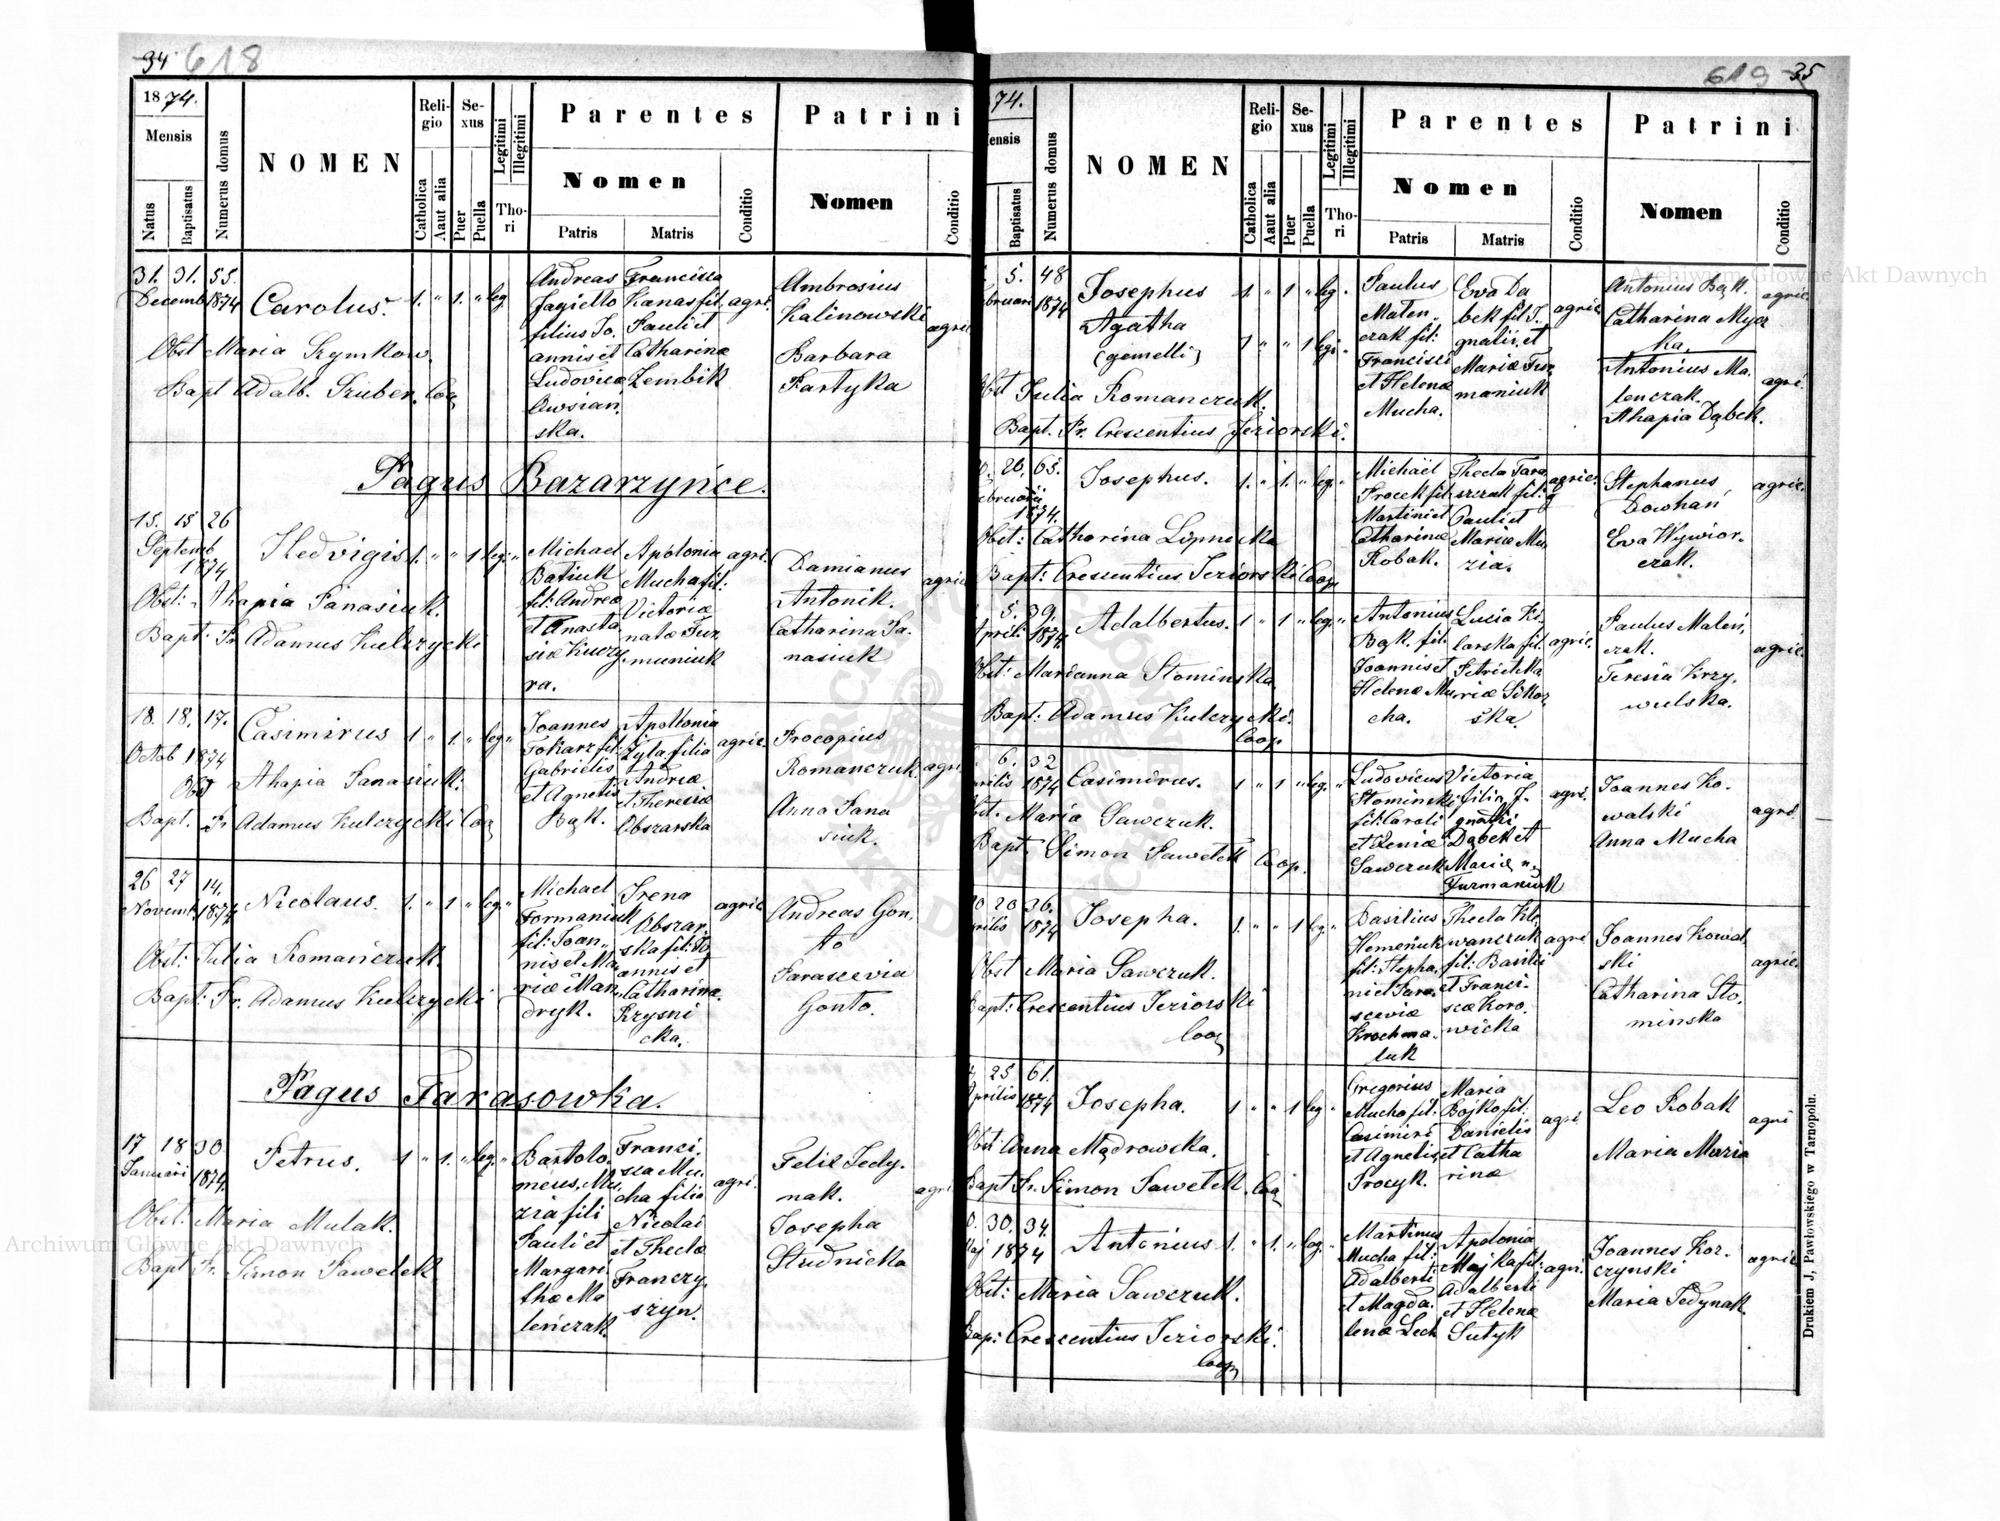 34 618
1874.
Mensis
Natus
Baptisatus
Numerus domus
NOMEN
Religio
Catholica
Aaut alia
Sexus
Puer
Puella
Legitimi
Illegitimi
Thori
Parentes
Nomen
Patris
Matris
Conditio
Patrini
Nomen
Conditio
31. 31. 55.
Decemb 1874 Carolus. 1. " 1. " leg
Obst Maria Szymkow.
Bapt Adalb. Szuber. Coop
Andreas
Jagiełło
filius Jo.
annis et
Ludovicæ
Owsian
ska.
Francisca
Kanas fil.
Pauli et
Catharinæ
Zembik
agri.
Ambrosius
Kalinowski
Barbara
Partyka
agric
Pagus Bazarzyńce.
15. 15 26
Septemb 1874
Hedvigis 1. " " 1 leg. "
Obst: Ahapia Panasiuk.
Bapt: Fr Adamus Kulczycki
Michael
Batiuk
fil: Andreæ
et Anasta
siæ Kuczy
ra.
Apolonia
Mucha fil:
Victoriæ
natæ Fur
muniuk
agri.
Damianus
Antonik.
Catharina Pa.
nasiuk
agric
18. 18. 17.
Octob 1874
Casimirus 1. " 1. " leg. "
Obst Ahapia Panasiuk.
Bapt. Fr Adamus Kulczycki Coop
Joannes
Tokarz fil:
Gabrielis
et Agnetis
Bąk.
Apollonia
Zyła filia
Andreæ
et Theresiæ
Obszarska
agric.
Procopius
Romanczuk.
Anna Pana
siuk.
agri
26 27 14.
Novemb. 1874
Nicolaus. 1. " 1 " leg. "
Obst: Julia Romańczuk.
Bapt: Fr. Adamus Kulczycki
Michael
Formaniuk
fil: Joan,
nis et Ma
riæ Man,
dryk.
Irena
Obszar,
ska fil: Jo
annis et
Catharinæ
Krysni
cka.
agric
Andreas Gon,
to
Parascevia
Gonto.
Pagus Tarasowka.
17 18 30
Januari 1874.
Petrus. 1 " 1. " leg. "
Obst: Maria Mulak.
Bapt Fr. Simon Pawełek
Bartolo.
meus, Mu
zia fili
Pauli et
Margari
thæ Ma
leńczak.
Franci.
sca Mu.
cha filia
Nicolai
et Theclæ
Franczy.
szyn.
agri.
Felix Jedy.
nak.
Josepha
Studnicka
agri
619 35
74.
ensis
Baptisatus
Numerus domus
NOMEN
Religio
Catholica
Aaut alia
Sexus
Puer
Puella
Legitimi
Illegitimi
Thori
Parentes
Nomen
Patris
Matris
Conditio
Patrini
Nomen
Conditio
5. 48
bruari 1874
Josephus 1. " 1 " leg. "
Agatha 1. " " 1 leg. "
(gemelli)
Obst Julia Romanczuk.
Bapt. Fr. Crescentius Jeziorski.
Paulus
Maten,
czak fil:
Francisci
et Helenæ
Mucha.
Eva Dą
bek fil: I.
gnatii, et
Mariæ Fur
maniuk
agric.
Antonius Bąk.
Catharina Mycz
ka.
Antonius Ma.
lenczak.
Ahapia Dąbek.
agric.
agri.
26. 65.
ebruarii
1874.
Josephus. 1. " 1. " leg. "
Obst: Catharina Lipnicka
Bapt: Crescentius Jeziorski Coop
Michäel
Procek fil:
Martini et
Catharinæ
Robak.
Thecla Tara
szczuk fil:
Pauli et
Mariæ Mu
zia.
agric.
Stephanus
Dowhań
Eva Wywior.
czak.
agric.
5. 39.
Aprili 1874.
Adalbertus. 1 " 1 " leg. "
Obst: Marianna Słominska
Bapt: Adamus Kulczycki.
Coop
Antonius
Bąk. fil:
Joannis et
Helenæ Mu
cha.
Lucia Ki
larska fil:
Petri et Ma
riæ Sikor
ska
agric.
Paulus Maleń,
czak.
Teresia Krzy,
wulska.
agric.
6. 32
prilis 1874
Casimirus. 1 " 1 " leg. "
Obst. Maria Sawczuk.
Bapt. Simon Pawełek Coop.
Ludovicus
Słominski
fil: Caroli
et Xeniæ
Sawczuk
Victoria
filia I.
gnatii
Dąbek et
Mariæ
Furmaniuk
agri.
Joannes Ko.
walski
Anna Mucha
agri
20 36.
prilis 1874
Josepha. 1. " " 1 leg. "
Obst Maria Sawczuk.
Bapt: Crescentius Jeziorski
Coop
Basilius
Hemeńiuk
fil: Stepha.
ni et Para.
sceviæ
Krochma.
luk
Thecla Kle
wanczuk
fil: Basilii
et Franci.
scæ Koro
wicka
agri
Joannes Kowal.
ski
Catharina Sło.
minska
agric.
25 61.
Aprilis 1874
Josepha. 1 " " 1 leg. "
Obst: Anna Mądrowska.
Bapt Fr. Simon Pawełek. Coop
Gregorius
Mucha fil:
Casimiri
et Agnetis
Procyk.
Maria
Bojko fil:
Danielis
et Catha
rinæ
agri.
Leo Robak
Maria Muzia
agri
30. 34.
Maj 1874
Antonius 1. " 1. " leg. "
Obst: Maria Sawczuk.
Bap: Crescentius Jeziorski.
Coop
Martinus
Mucha fil:
Adalberti
et Magda.
lenæ Lech
Apolonia
Majka fil:
Adalberti
et Helenæ
Sutyk
agri.
Joannes Kor.
czynski
Maria Jedynak
agric
Drukiem J, Pawłowskiego w Tarnopolu.
Archiwum Główne Akt Dawnych
Archiwum Główne Akt Dawnych
ARCHIWUM GŁÓWNE AKT DAWNYCH